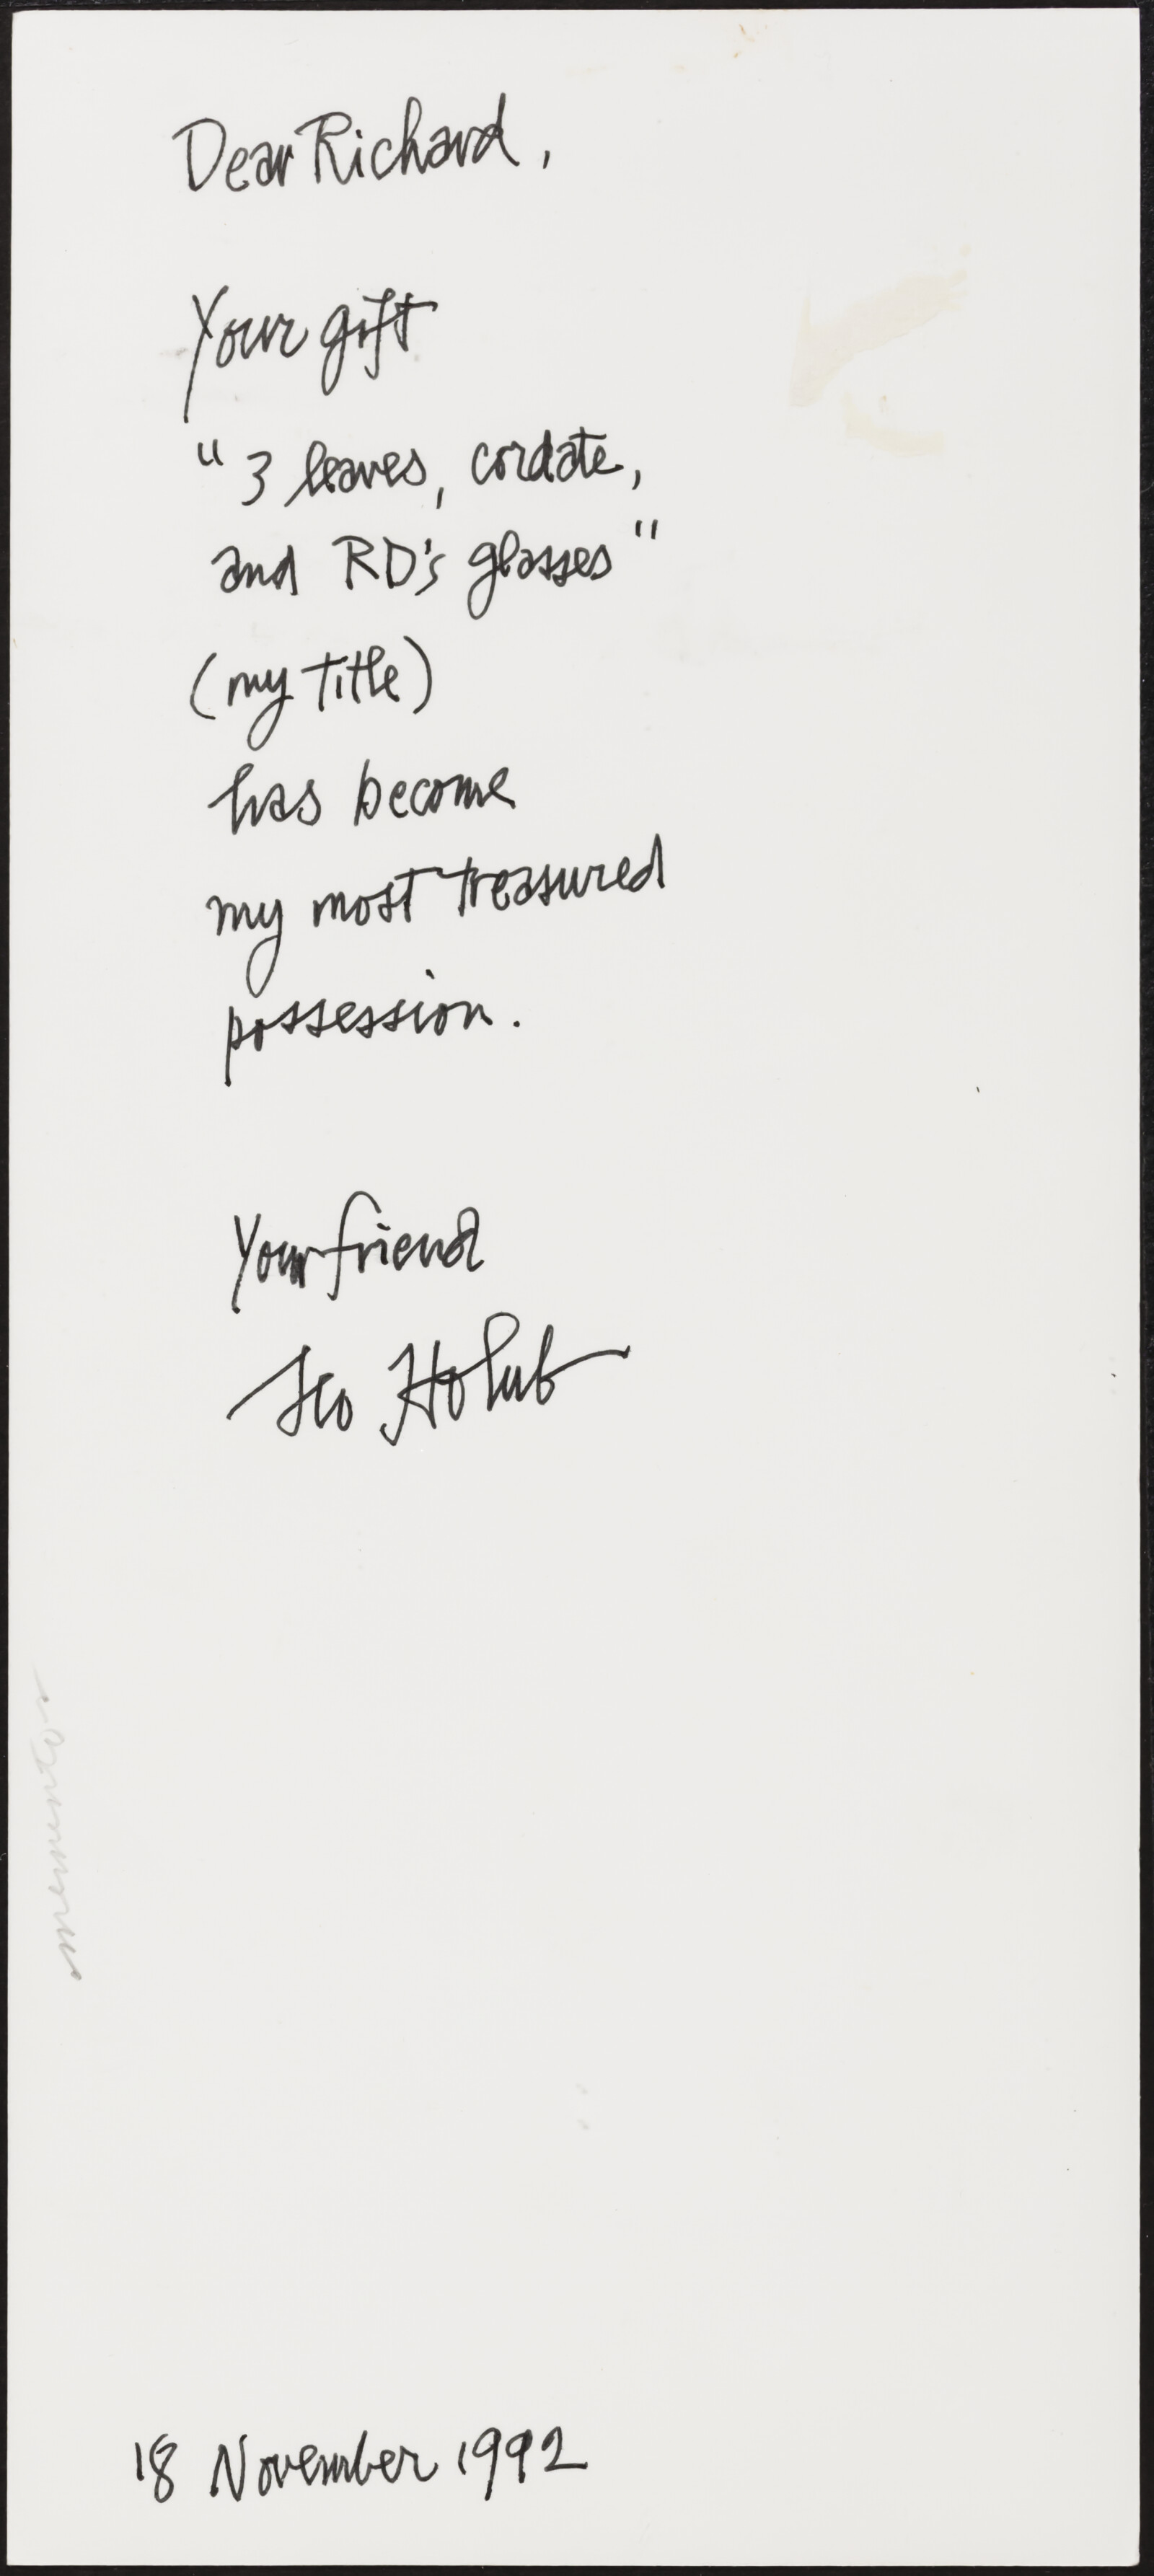 Dear Richard,
Your gift
"3 leaves, cordate,
and RD's glasses"
(my title)
has become
my most treasured
possession.
Your friend
Leo Holub
mementos
18 November 1992